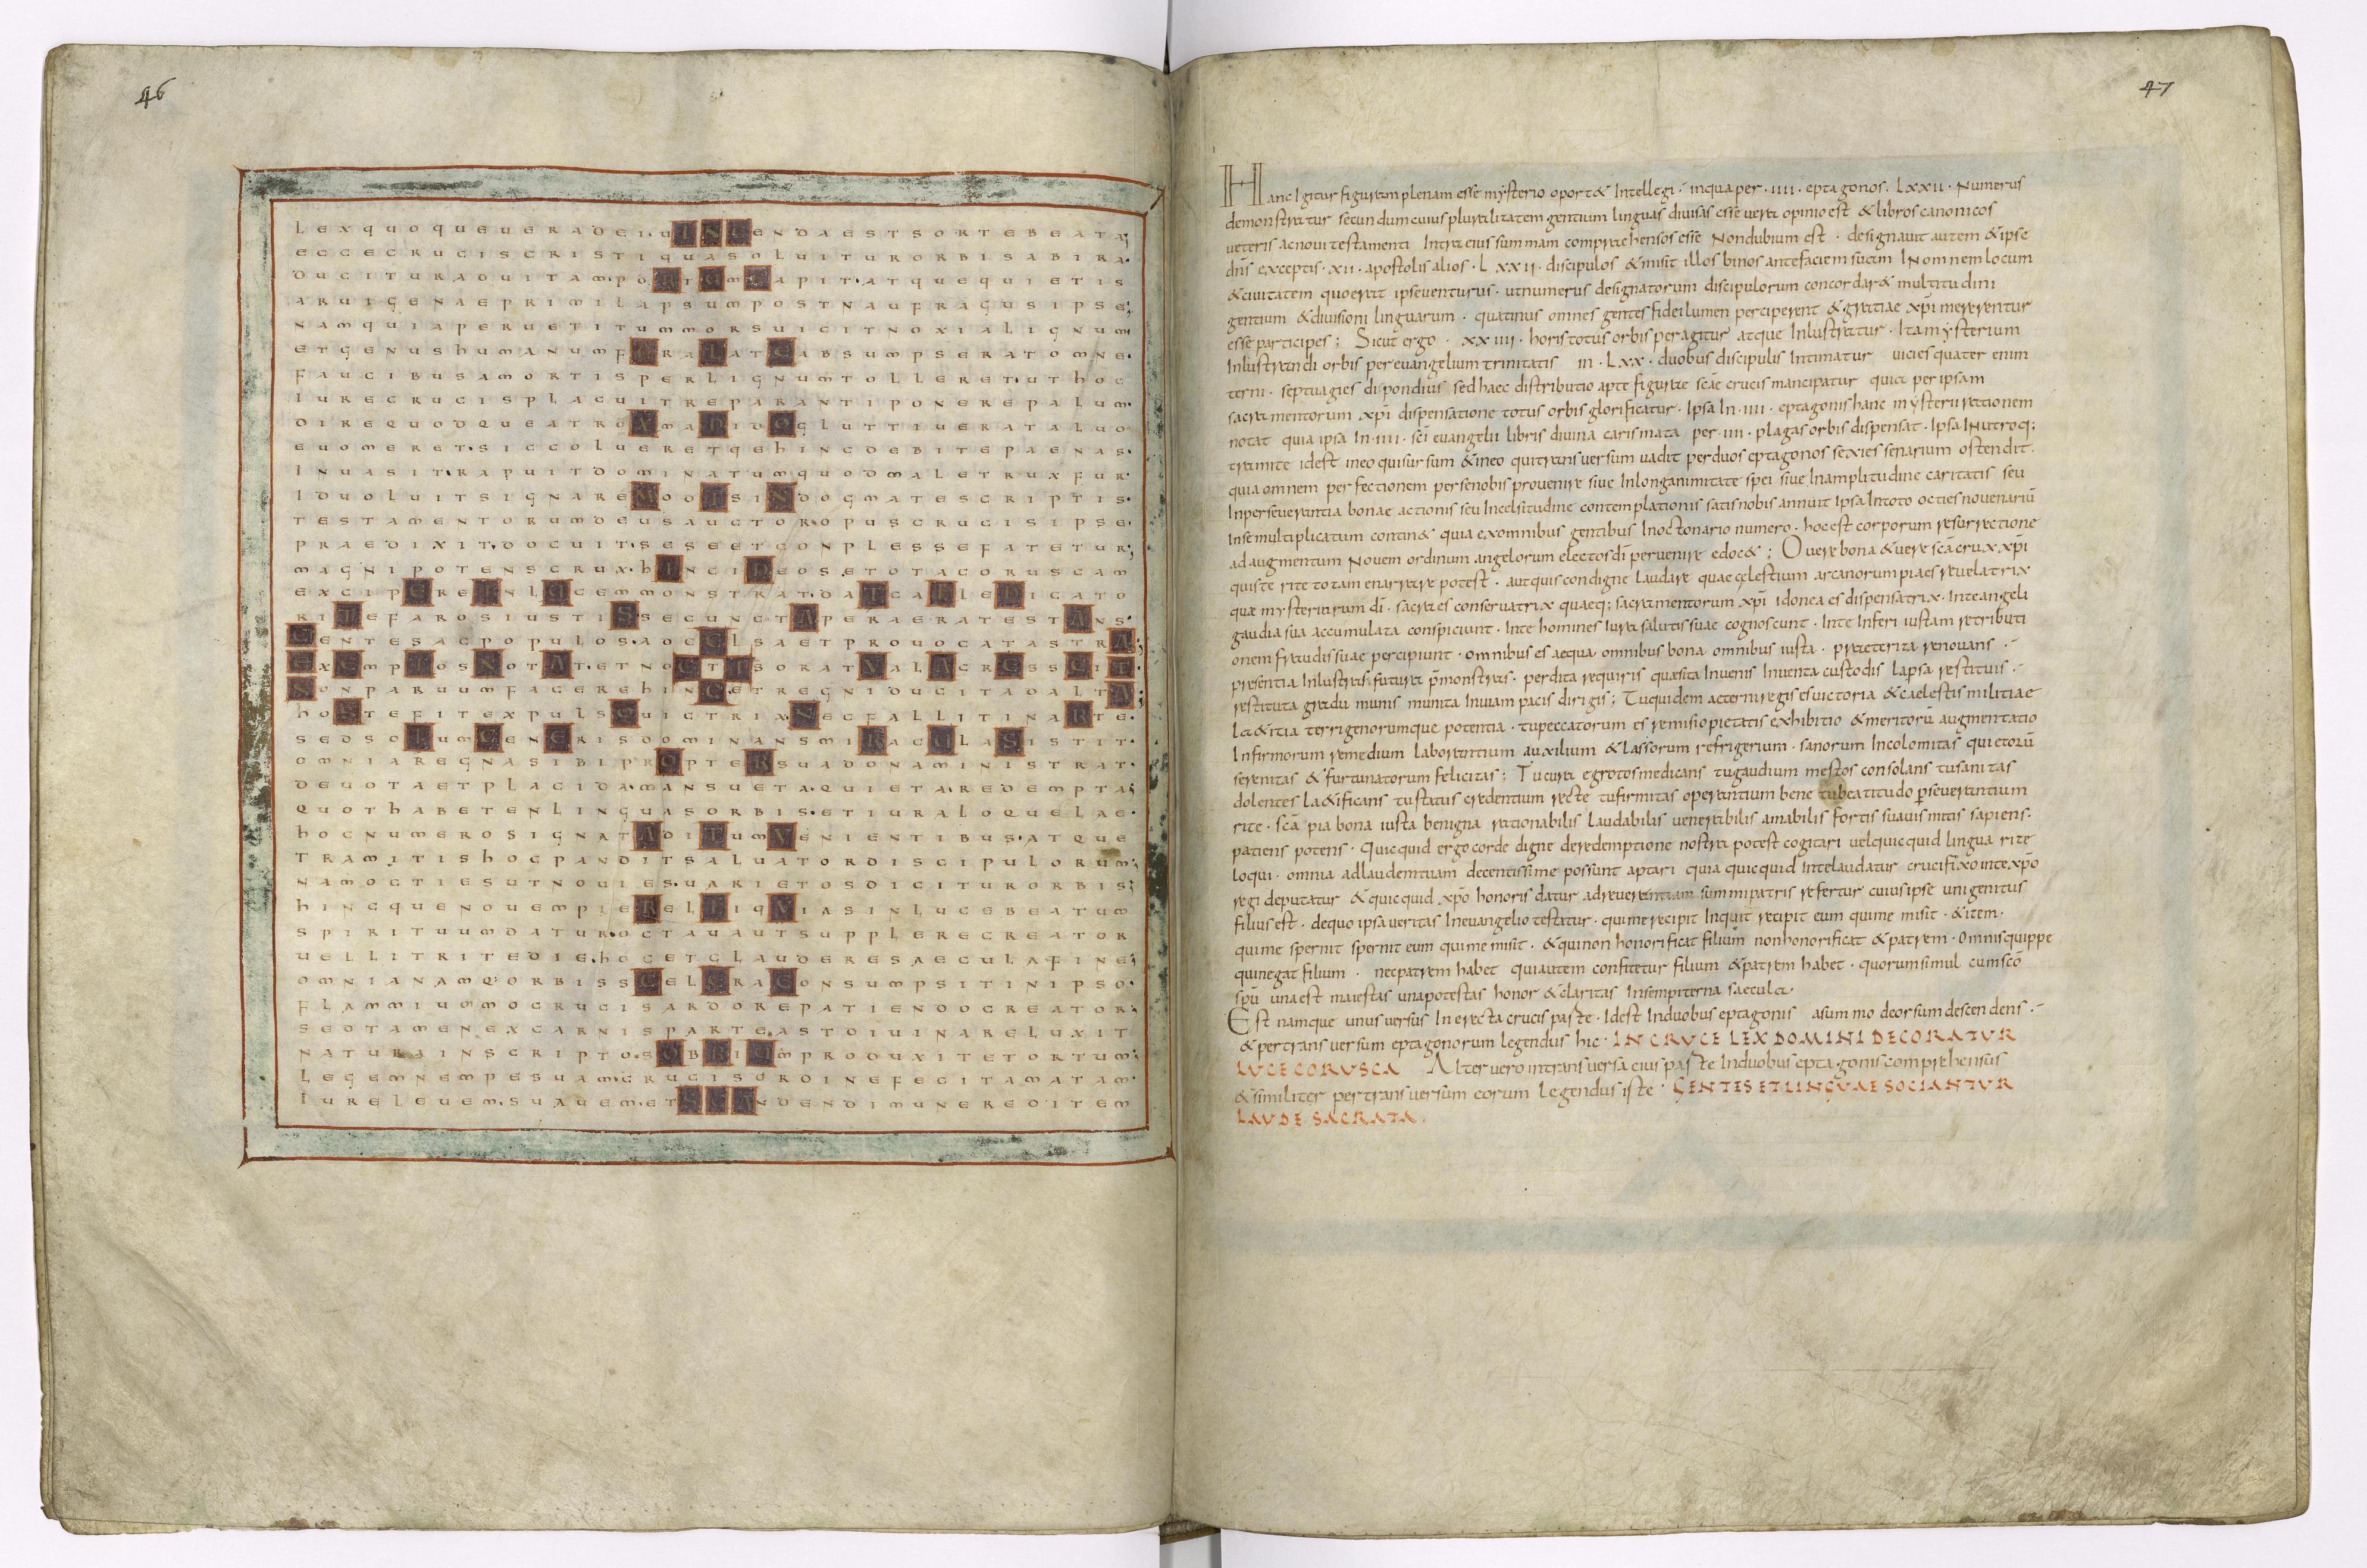 46
LEXQUOQUEUERADEI·UINCENDAESTSORTEBEATA;
ECCECRUCISCRISTIQUASOLUITURORBISABIRA·
DUCITURADUITAM·PORTCMCAPIT·ATQUEQUIETIS
ARUIGENAEPRIMILAPSUMPOSTNAUFRAGUSIPSE;
NAMQUIAPERUETITUMMORSUICITNOXIALIGNUM
ETGENUSHUMANUMFERALEATEABSUMPSERATOMNE·
FAUCIBUSAMORTISPERLIGNUMTOLLERET·UTHOC
IURECRUCISPLACUITREPARANTIPONEREPALUM·
DIREQUODQUEATROXMANDOGLUTTIUERATALUO
EUOMERET·SICCOLUERETQEHINCDEBITEPAENAS·
INUASIT·RAPUITDOMINATUMQUODMALETRUXFUR·
IDUOLUITSIGNAREMODISINDOGMATESCRIPTIS·
TESTAMENTORUMDEUSAUCTOR·OPUSCRUCISIPSE·
PRAEDIXIT·DOCUIT·SESEETCONPLESSEFATETUR;
MAGNIPOTENSCRUX·HINCIDEOSETOTACORUSCAM
EXCIPERETNLUCEMMONSTRAT·DATCALLEDICATO
RITEFAROSIUSTISSECUNCTAPERAERATESTANS·
GENTESACPOPULOS·AOCCLSAETPROUOCATASTRA;
EXEMPTOSNOTAT·ETNOCTISORATVALACRESSCIT
NONPARUUMFACEREHINCETREGNIDUCITADALTA;
HOSTEFITEXPULSOUICTRIXNECFALLITINARTE·
SEDSOLUMGENERISDOMINANSMIRACULASISTIT·
OMNIAREGNASIBIPROPTERSUADONAMINISTRAT·
DEUOTAETPLACIDA·MANSUETA·QUIETA·REDEMPTA;
QUOTHABETENLINGUASORBIS·ETIURALOQUELAE·
HOCNUMEROSIGNATADITUMVENIENTIBUS·ATQUE
TRAMITISHOCPANDITSALUATORDISCIPULORUM·
NAMOCTIESUTNOUIES·UARIETOSDICITURORBIS;
HINCQUENOUEMPIERELIQVIASINLUCEBEATUM
SPIRITUUMDATUR·OCTAUAUTSUPPLERECREATOR
UELLITRITEDIE·HOCETCLAUDERESAECULAFINE;
OMNIANAMQ:ORBISSCELERACONSUMPSITINIPSO·
FLAMMIUOMOCRUCISARDOREPATIENDOCREATOR·
SEDTAMENEXCARNISPARTE·ASTDIUINARELUXIT
NATURAINSCRIPTO·SOBRIUMPRODUXITETORTUM·
LEGEMNEMPESUAM·CRUCISORDINEFECITAMATAM·
IURELEUEM·SUAUEM·ETSCANDENDIMUNEREDITEM
47
Hanc Igitur figuram plenam esse mysterio oport& Intellegi· inqua per·IIII·eptagonos·LXXII·Numerus
demonstratur secundum cuius pluralitatem gentium linguas divisas esse vera opinio est &libros canonicos
veteris acnovi testamenti Intra eius summam comprehensos esse Nondubium est· designavit autem &ipse
dns exceptis·XII·apostolis alios·LXXII·discipulos &misit illos binos antefaciem suam INomnem locum
&civitatem quoerat ipseventurus· utnumerus designatorum discipulorum concordar& multitudini
gentium &divisioni linguarum· quatinus omnes gentes fidei lumen perciperent &gratiae xpi mererentur
esse participes; Sicut ergo·XXIIII·horis totus orbis peragitur atque Inlustratur· Ita mysterium
Inlustrandi orbis per evangelium trinitatis in·LXX·duobus discipulis Intimatur vicies quater enim
terni· septuagies dipondius sed haec distributio apte figurae scae crucis mancipatur quia per ipsam
sacramentorum xpi dispensatione totus orbis glorificatur· Ipsa In·IIII·eptagonis hanc mysterii rationem
notat quia ipsa In·IIII·sci evangelii libris divina carismata per·IIII·plagas orbis dispensat· Ipsa INutroq;
tramite idest ineo quisursum &ineo quitransversum vadit perduos eptagonos sexies senarium ostendit·
quia omnem perfectionem persenobis provenire sive Inlonganimitate spei sive Inamplitudine caritatis seu
Inperseverantia bonae actionis seu Incelsitudine contemplationis satis nobis annuit Ipsa Intoto octies novenariu
Insemultiplicatum contin& quia exomnibus gentibus Inoctonario numero· hocest corporum resurrectione
ad augmentum Novem ordinum angelorum electos di pervenire edoc&; O vere bona &vere sca crux xpi
quis te rite totam enarrare potest· aut quis condigne laudare quae celestium arcanorum pia es revelatrix
quae mysteriorum di· sacra es conservatrix quaeq; sacramentorum xpi idonea es dispensatrix· Inte angeli
gaudia sua accumulata conspiciunt· Inte homines iura salutis suae cognoscunt· Inte Inferi iustam retributi
onem fraudis suae percipiunt· omnibus es aequa· omnibus bona omnibus iusta· praeterita renovans·
presentia Inlustras futura pmonstras· perdita requiris quaesita Invenis Inventa custodis lapsa restituis·
restituta gradu munis munita Inviam pacis dirigis; Tu quidem aeterni regis es victoria &caelestis militiae
la&itia terrigenorumque potentia· tu peccatorum es remisio pietatis exhibitio &meritoru augmentatio
Infirmorum remedium laborantium auxilium &lassorum refrigerium· sanorum Incolomitas quietoru
serenitas &fortunatorum felicitas; Tu cura egrotos medicans tu gaudium mestos consolans tu sanitas
dolentes la&ificans tu status credentium recte tu firmitas operantium bene tu beatitudo pseverantium
rite· sca pia bona iusta benigna rationabilis laudabilis venerabilis amabilis fortis suavis mitis sapiens·
patiens potens· Quicquid ergo corde digne deredemptione nostra potest cogitari vel quicquid lingua rite
loqui· omnia ad laudem tuam decentissime possunt aptari quia quicquid Inte laudatur crucifixo inte xpo
regi deputatur &quicquid xpo honoris datur ad reverentiam summi patris refertur cuius ipse unigenitus
filius est· dequo ipsa veritas Inevangelio testatur· qui me recipit Inquit recipit eum qui me misit· &item·
qui me spernit spernit eum qui me misit· &qui non honorificat filium non honorificat &patrem· Omnis quippe
qui negat filium· nec patrem habet qui autem confitetur filium &patrem habet· quorum simul cum sco
spu una est maiestas una potestas honor &claritas Insempiterna saecula·
Est namque unus versus Inerecta crucis parte· Idest Induobus eptagonis asummo deorsum descendens·
&pertransversum eptagonorum legendus hic· IN CRVCE LEX DOMINI DECORATVR
LVCE CORVSCA Alter vero intransversa eius parte Induobus eptagonis comprehensus
&similiter pertransversum eorum legendus iste· GENTES ET LINGVAE SOCIANTVR
LAVDE SACRATA·